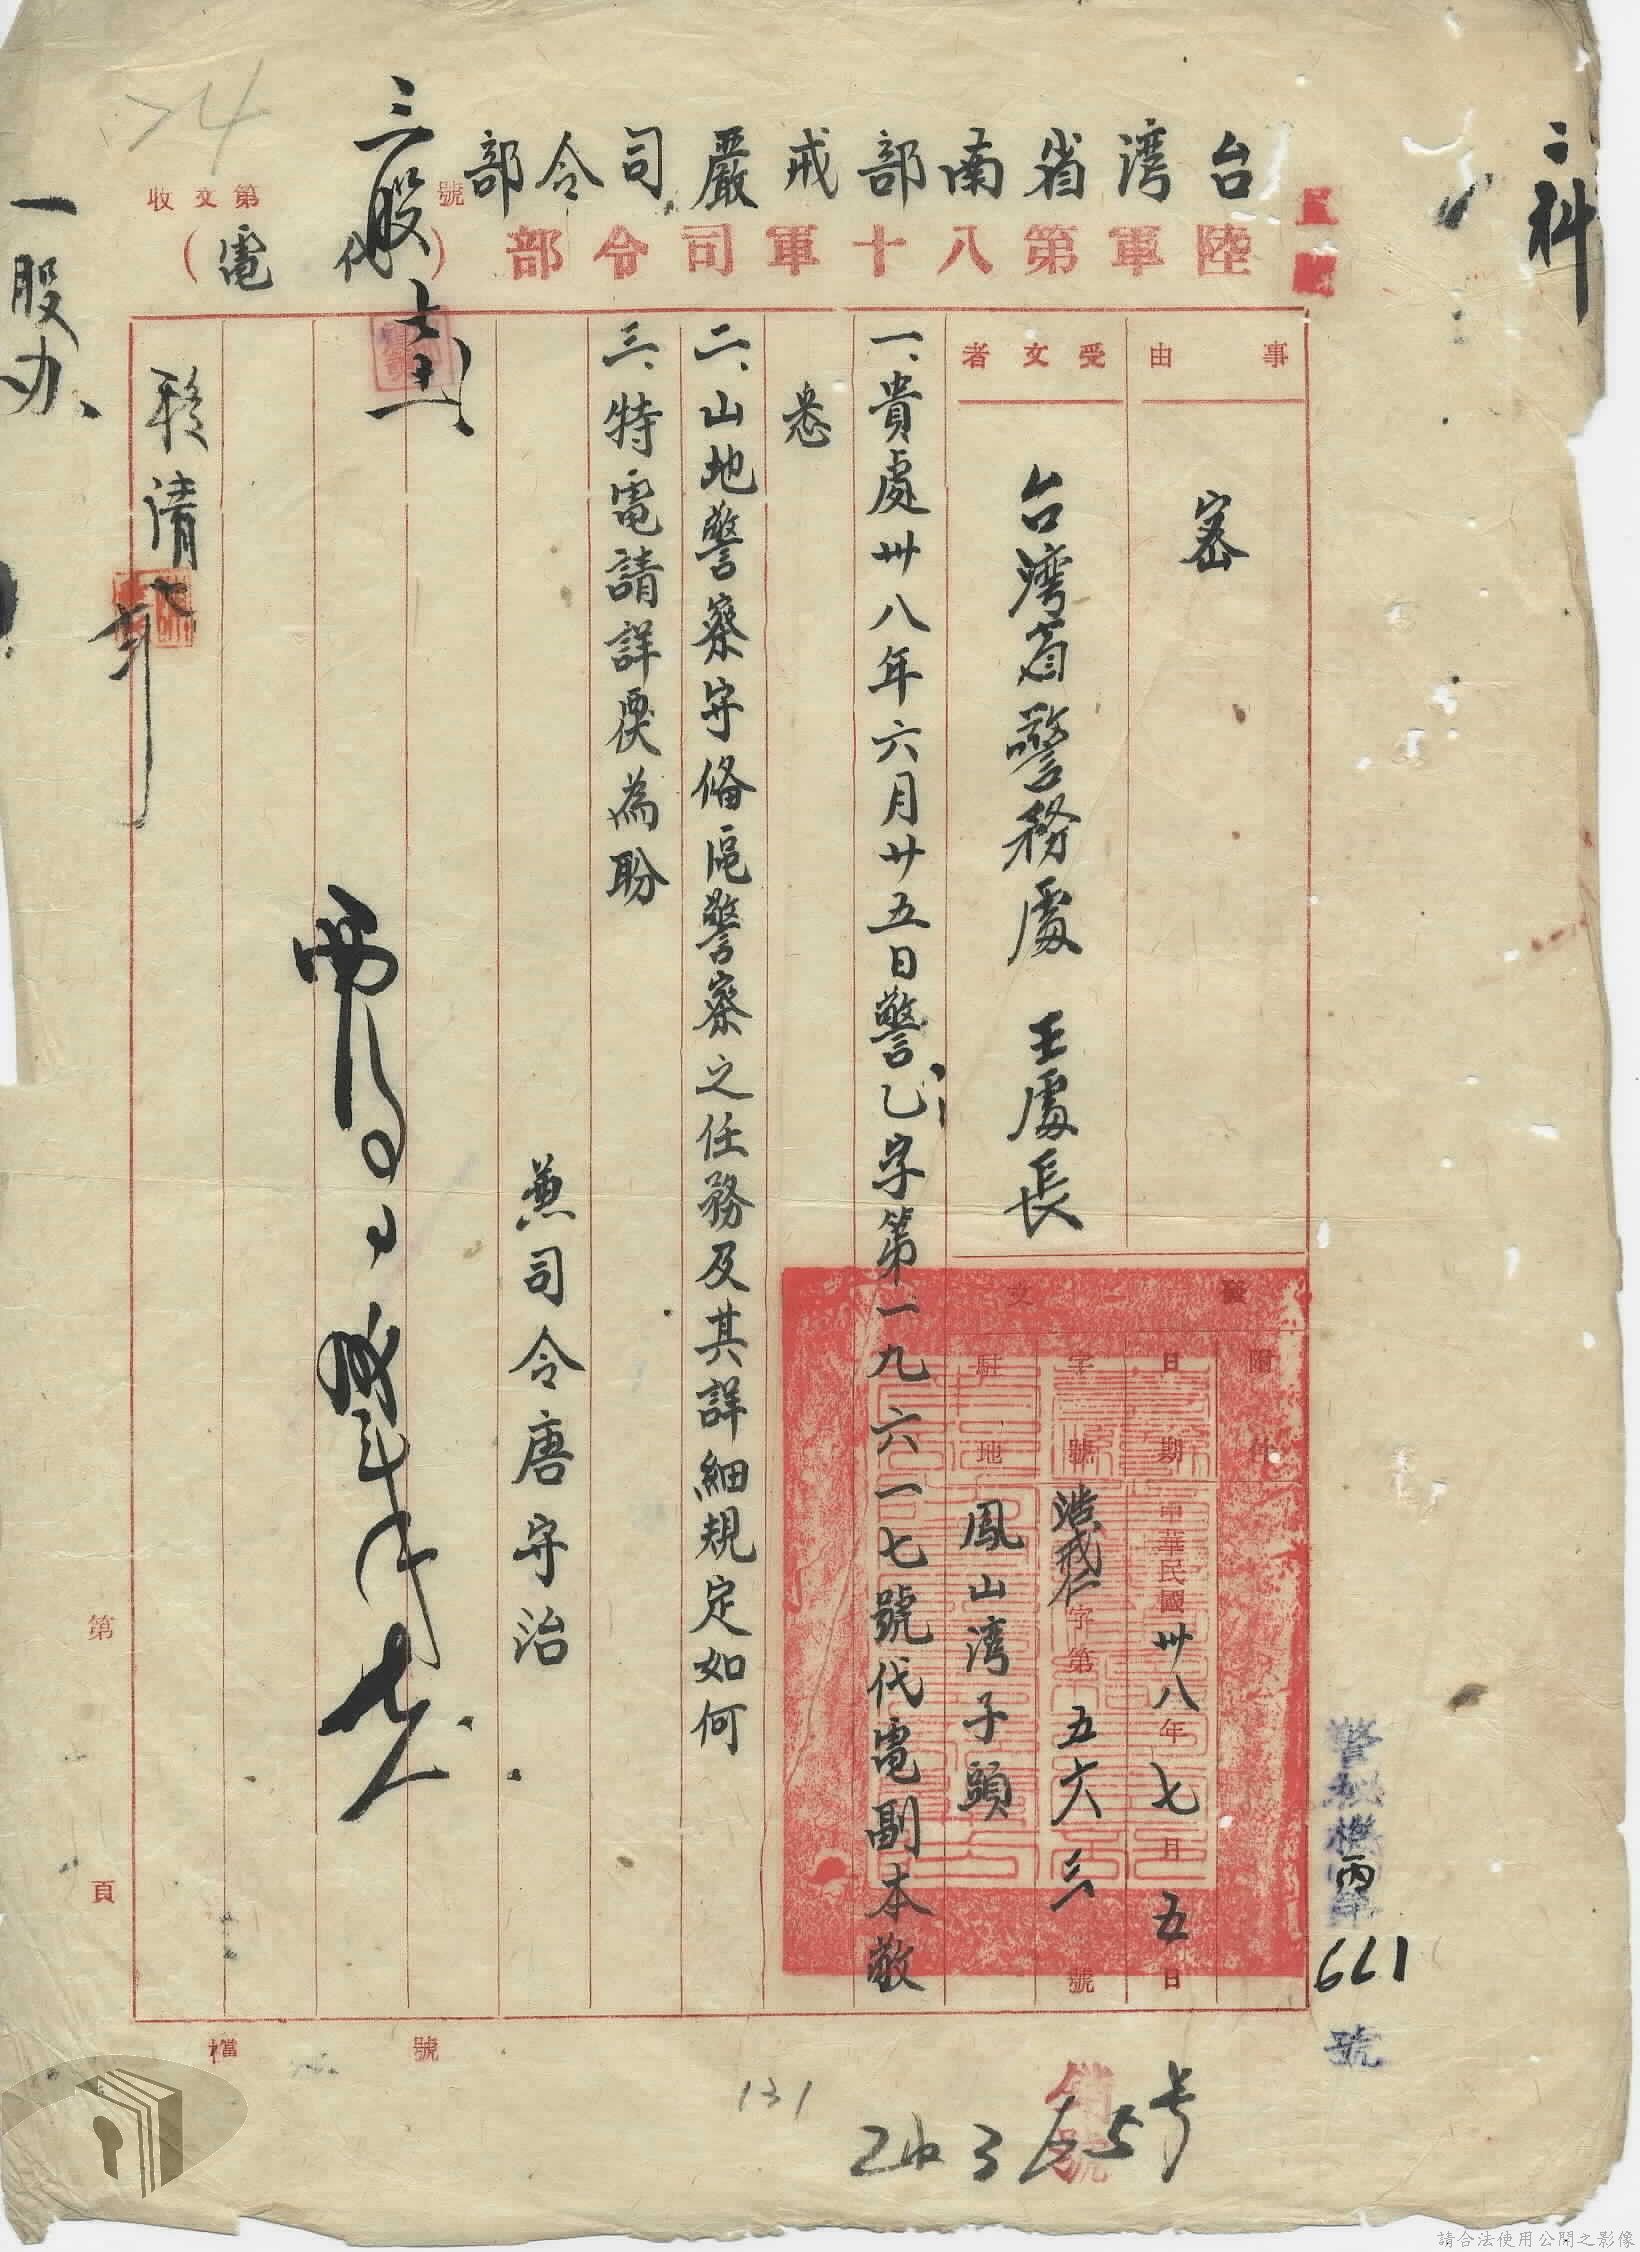 二科
台灣省南部戒嚴司令部
陸軍第八十軍司令部
（代電）
收文第 號
三股
一股办
事由
密
受文者
台灣省警務處 王處長
附件
日期 中華民國卅八年七月五日
字號 浩戒仁字第五六三號
駐地 鳳山灣子頭
一、貴處卅八年六月廿五日警乙字第一九六一七號代電副本敬
悉
二、山地警察守備區警察之任務及其詳細規定如何
三、特電請詳復為盼
兼司令唐守治
第 頁
檔 號
661
號
銷號
131
請合法使用公開之影像